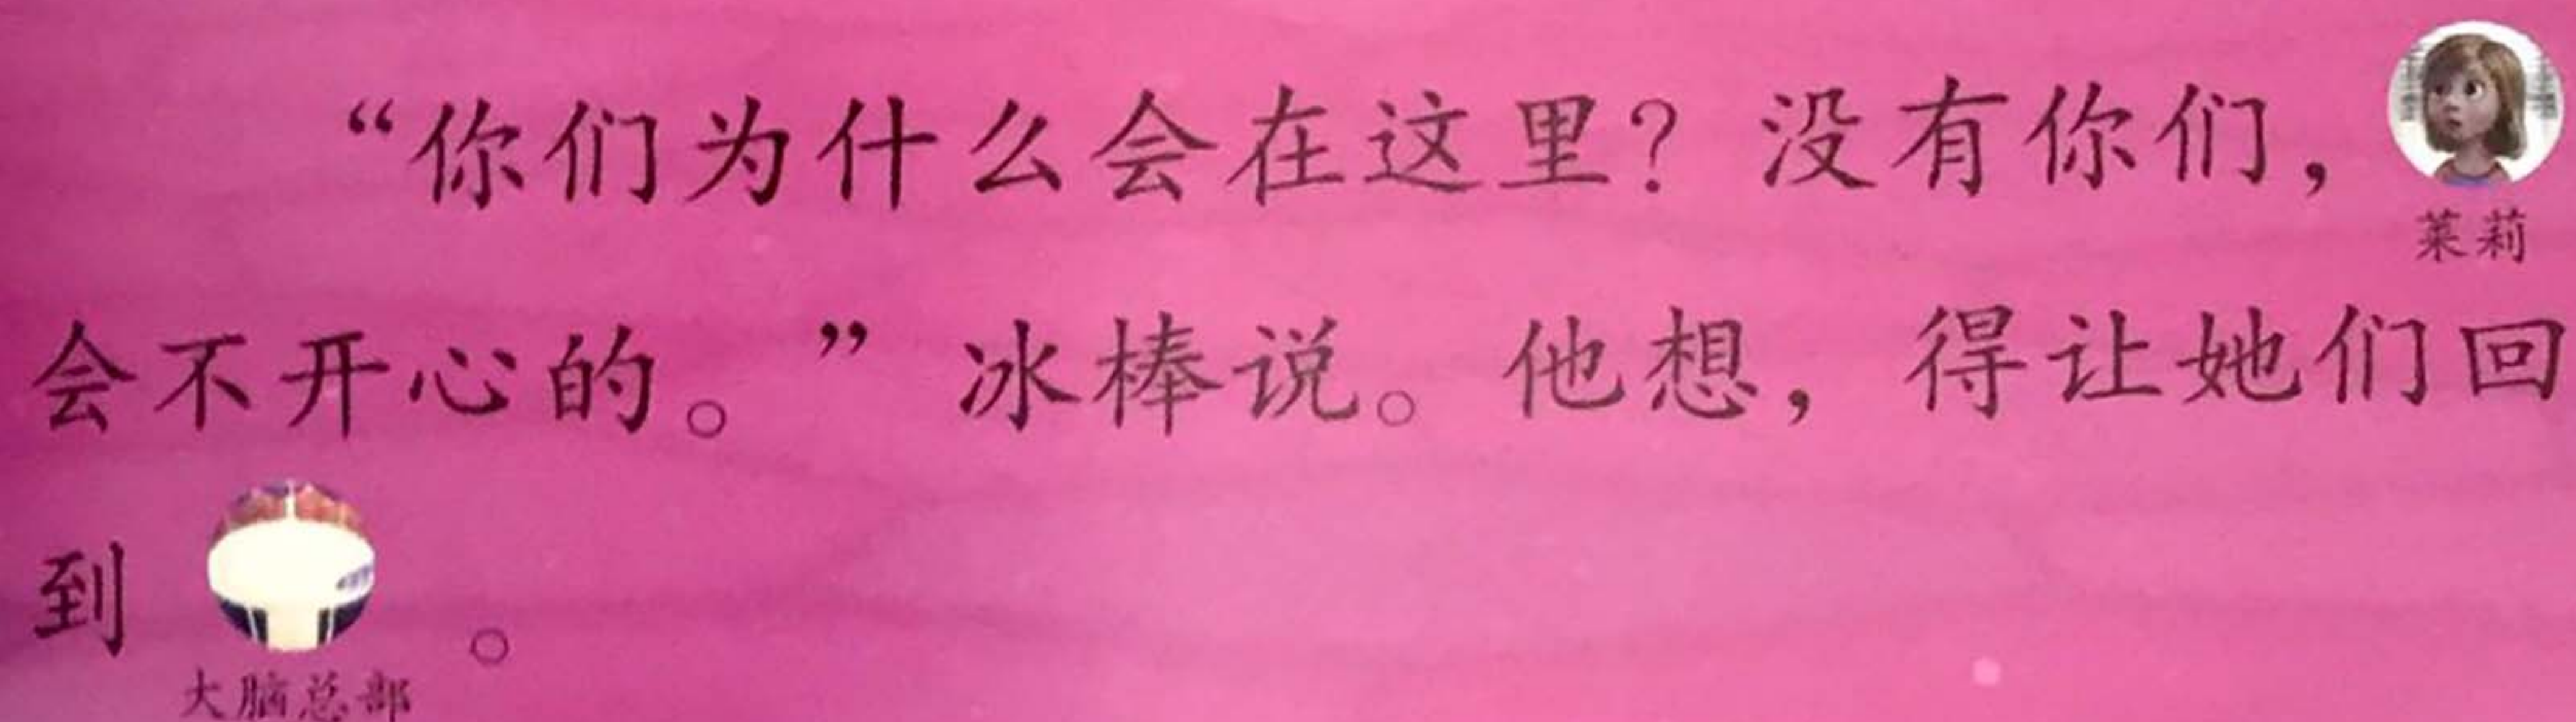 “你们为什么会在这里？没有你们，
莱莉
会不开心的。”冰棒说。他想，得让她们回
到。
大脑总部